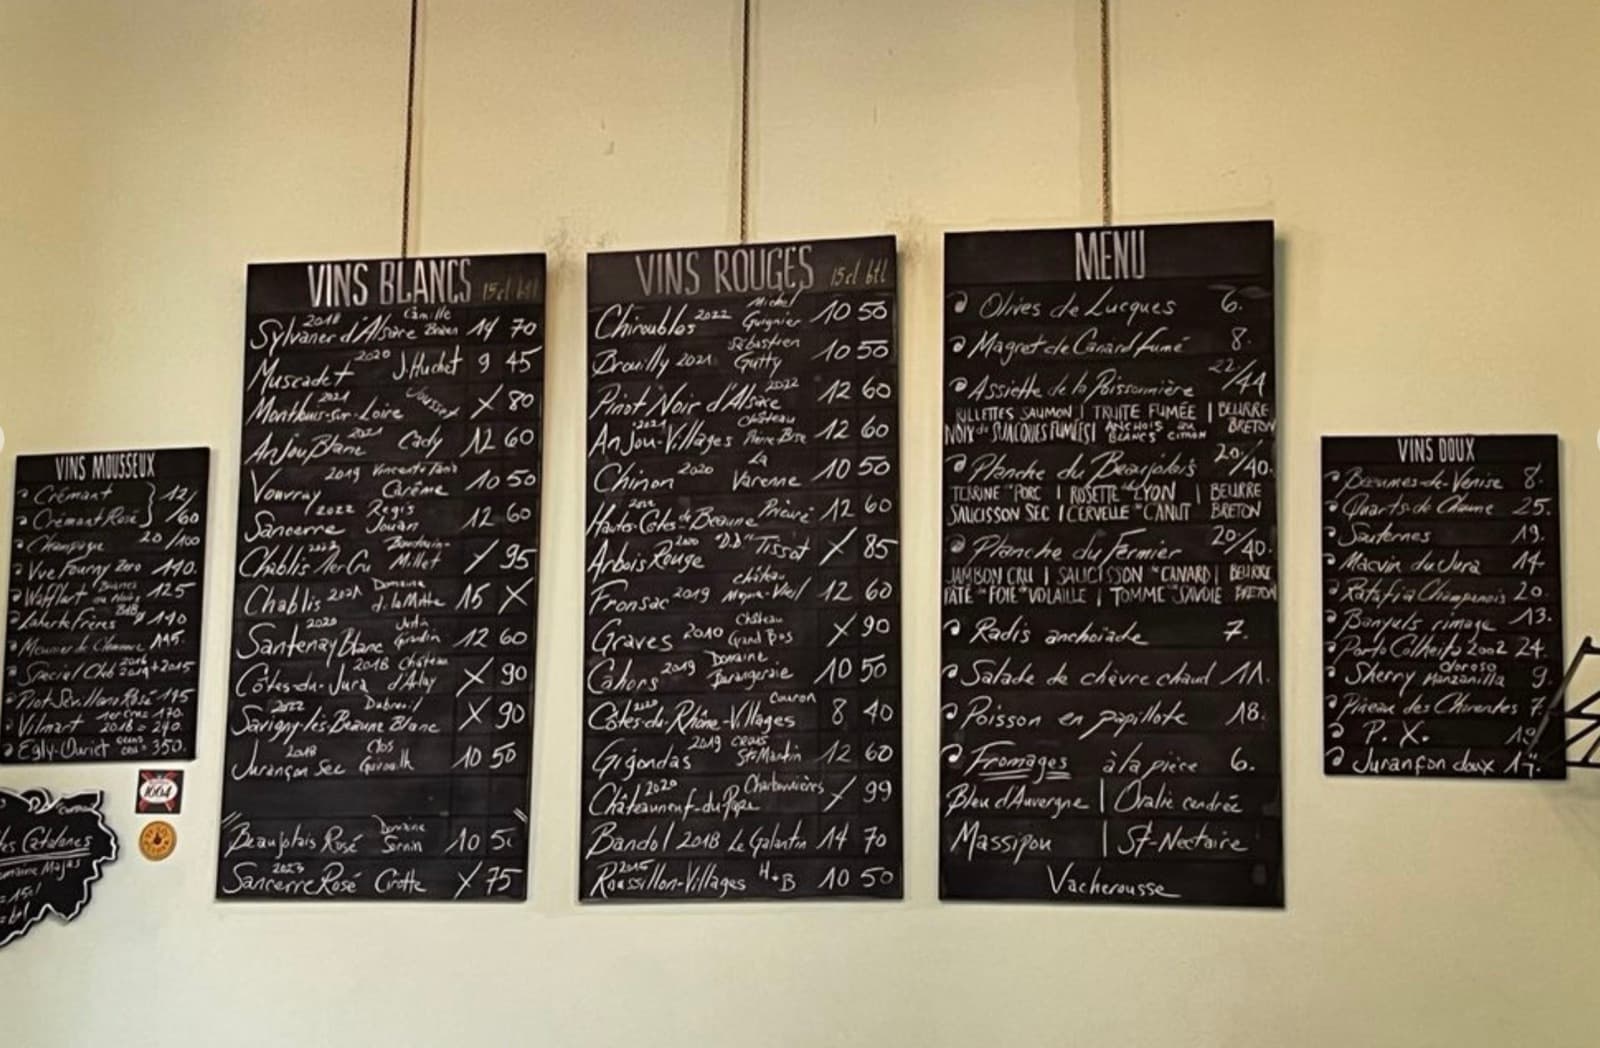 VINS MOUSSEUX
Crémant } 12/
Crémant Rosé } /60
Champagne 20/100
Vve Fourny Zero 110.
Wafflart 125
Laherte Frères 140
195.
Special Club
Rosé 195
Vilmart 1er Cru = 170. 2018 = 240.
Egly-Ouriet = 350.
les Catalanes
maine Majas
= 15cl
= btl
1664
VINS BLANCS 15cl btl
Sylvaner d'Alsace 2018 Camille Braun 14 70
Muscadet 2020 J. Huchet 9 45
Montlouis-sur-Loire 2021 X 80
Anjou Blanc 2021 Cady 12 60
Vouvray 2019 Vincent + Tania Carême 10 50
Sancerre 2022 Régis Jouan 12 60
Chablis 1er Cru Millet X 95
Chablis 2021 Domaine d. la Motte 15 X
Santenay Blanc 2020 Justin Girardin 12 60
Côtes-du-Jura 2018 Château d'Arlay X 90
Savigny-lès-Beaune Blanc 2022 Dubreuil X 90
Jurançon Sec 2018 Clos 10 50
Beaujolais Rosé Domaine Sornin 10 50
Sancerre Rosé 2023 Cirotte X 75
VINS ROUGES 15cl btl
Chiroubles 2022 Michel Guignier 10 50
Brouilly 2021 Sébastien Gutty 10 50
Pinot Noir d'Alsace 2022 12 60
Anjou-Villages 2021 Château Pierre-Bise 12 60
Chinon 2020 La Varenne 10 50
Hautes-Côtes de Beaune Prieuré 12 60
Arbois Rouge 2020 "D.D." Tissot X 85
Fronsac 2019 château 12 60
Graves 2010 Château Grand Bos X 90
Cahors 2019 Domaine 10 50
Côtes-du-Rhône-Villages 2020 Couron 8 40
Gigondas 2019 St-Martin 12 60
Châteauneuf-du-Pape 2020 Charbonnières X 99
Bandol 2018 Le Galantin 14 70
Roussillon-Villages 2015 H+B 10 50
MENU
Olives de Lucques 6.
Magret de Canard fumé 8.
Assiette de la Poissonnière 22/44
RILLETTES SAUMON | TRUITE FUMÉE | BEURRE
NOIX de ST JACQUES FUMÉES | ANCHOIS BLANCS au CITRON BRETON
Planche du Beaujolais 20/40.
TERRINE PORC | ROSETTE LYON | BEURRE
SAUCISSON SEC | CERVELLE CANUT | BRETON
Planche du Fermier 20/40.
JAMBON CRU | SAUCISSON CANARD | BEURRE
PÂTÉ FOIE VOLAILLE | TOMME SAVOIE BRETON
Radis anchoïade 7.
Salade de chèvre chaud 11.
Poisson en papillote 18.
Fromages à la pièce 6.
Bleu d'Auvergne | Oralie cendrée
Massipou | St-Nectaire
Vacherousse
VINS DOUX
Beaumes-de-Venise 8.
Quarts-de-Chaume 25.
Sauternes 19.
Macvin du Jura 14
Ratafia Champenois 20.
Banyuls rimage 13.
Porto Colheita 2002 24.
Sherry oloroso manzanilla 9.
Pineau des Charentes 7.
P. X. 19
Jurançon doux 17.